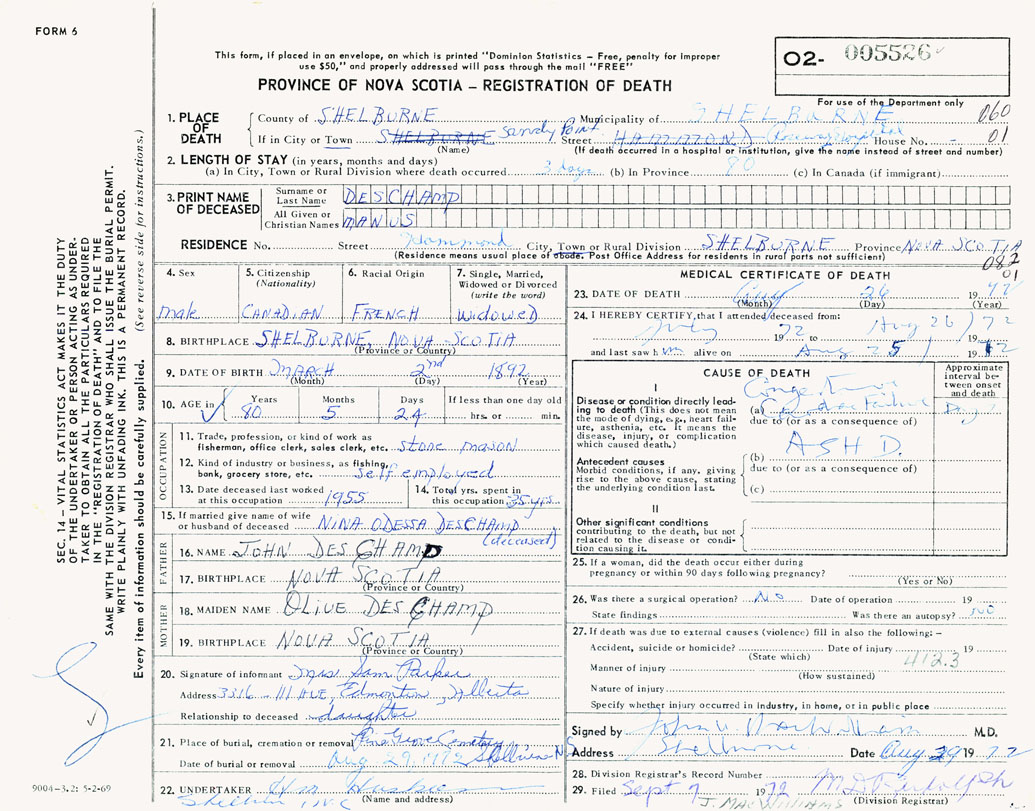 FORM 6
This form, if placed in an envelope, on which is printed "Dominion Statistics – Free, penalty for improper
use $50," and properly addressed will pass through the mail "FREE"
PROVINCE OF NOVA SCOTIA – REGISTRATION OF DEATH
O2- 005526
For use of the Department only
060
01
1. PLACE OF DEATH
County of SHELBURNE Municipality of SHELBURNE
If in City or Town SHELBURNE Sandy Point Street HAMMOND House No.
(Name) (If death occurred in a hospital or institution, give the name instead of street and number)
2. LENGTH OF STAY (in years, months and days)
(a) In City, Town or Rural Division where death occurred 3 days (b) In Province 80 (c) In Canada (if immigrant)
3. PRINT NAME OF DECEASED
Surname or Last Name DESCHAMP
All Given or Christian Names MANUS
RESIDENCE No. Street Hammond City, Town or Rural Division SHELBURNE Province NOVA SCOTIA
(Residence means usual place of abode. Post Office Address for residents in rural parts not sufficient)
082
01
4. Sex
male
5. Citizenship (Nationality)
CANADIAN
6. Racial Origin
FRENCH
7. Single, Married, Widowed or Divorced (write the word)
WIDOWED
8. BIRTHPLACE SHELBURNE, NOVA SCOTIA
(Province or Country)
9. DATE OF BIRTH MARCH 2nd 1892
(Month) (Day) (Year)
10. AGE in Years Months Days If less than one day old
80 5 24 hrs. or min.
OCCUPATION
11. Trade, profession, or kind of work as
fisherman, office clerk, sales clerk, etc. stone mason
12. Kind of industry or business, as fishing,
bank, grocery store, etc. self employed
13. Date deceased last worked at this occupation 1955
14. Total yrs. spent in this occupation 35 yrs.
15. If married give name of wife
or husband of deceased NINA ODESSA DESCHAMP
(deceased)
FATHER
16. NAME JOHN DESCHAMP
17. BIRTHPLACE NOVA SCOTIA
(Province or Country)
MOTHER
18. MAIDEN NAME OLIVE DESCHAMP
19. BIRTHPLACE NOVA SCOTIA
(Province or Country)
20. Signature of informant Mrs Sam Parker
Address 3316 - 111 AVE, Edmonton, Alberta
Relationship to deceased daughter
21. Place of burial, cremation or removal Pine Grove Cemetery
Date of burial or removal Aug 29, 1972 Shelburne N.S.
22. UNDERTAKER
(Name and address)
MEDICAL CERTIFICATE OF DEATH
23. DATE OF DEATH Aug 26 1972
(Month) (Day) (Year)
24. I HEREBY CERTIFY, that I attended deceased from:
July 1972 to Aug 26 1972
and last saw him alive on Aug 25 1972
CAUSE OF DEATH
Approximate interval between onset and death
I
Disease or condition directly lead-
ing to death (This does not mean
the mode of dying, e.g., heart fail-
ure, asthenia, etc. It means the
disease, injury, or complication
which caused death.)
(a) Congestive Cardiac Failure Days
due to (or as a consequence of)
Antecedent causes
Morbid conditions, if any, giving
rise to the above cause, stating
the underlying condition last.
(b) ASHD.
due to (or as a consequence of)
(c)
II
Other significant conditions
contributing to the death, but not
related to the disease or condi-
tion causing it.
25. If a woman, did the death occur either during
pregnancy or within 90 days following pregnancy?
(Yes or No)
26. Was there a surgical operation? No Date of operation 19
State findings Was there an autopsy? No
27. If death was due to external causes (violence) fill in also the following: –
Accident, suicide or homicide? Date of injury 19
(State which)
412.3
Manner of injury
(How sustained)
Nature of injury
Specify whether injury occurred in industry, in home, or in public place
Signed by M.D.
Address Shelburne Date Aug 29 1972
28. Division Registrar's Record Number
29. Filed Sept 7 1972
(Division Registrar)
J. MacWilliams
9004-3.2: 5-2-69
SEC. 14 – VITAL STATISTICS ACT MAKES IT THE DUTY
OF THE UNDERTAKER OR PERSON ACTING AS UNDER-
TAKER TO OBTAIN ALL THE PARTICULARS REQUIRED
IN THE "REGISTRATION OF DEATH" AND TO FILE THE
SAME WITH THE DIVISION REGISTRAR WHO SHALL ISSUE THE BURIAL PERMIT.
WRITE PLAINLY WITH UNFADING INK. THIS IS A PERMANENT RECORD.
Every item of information should be carefully supplied. (See reverse side for instructions.)